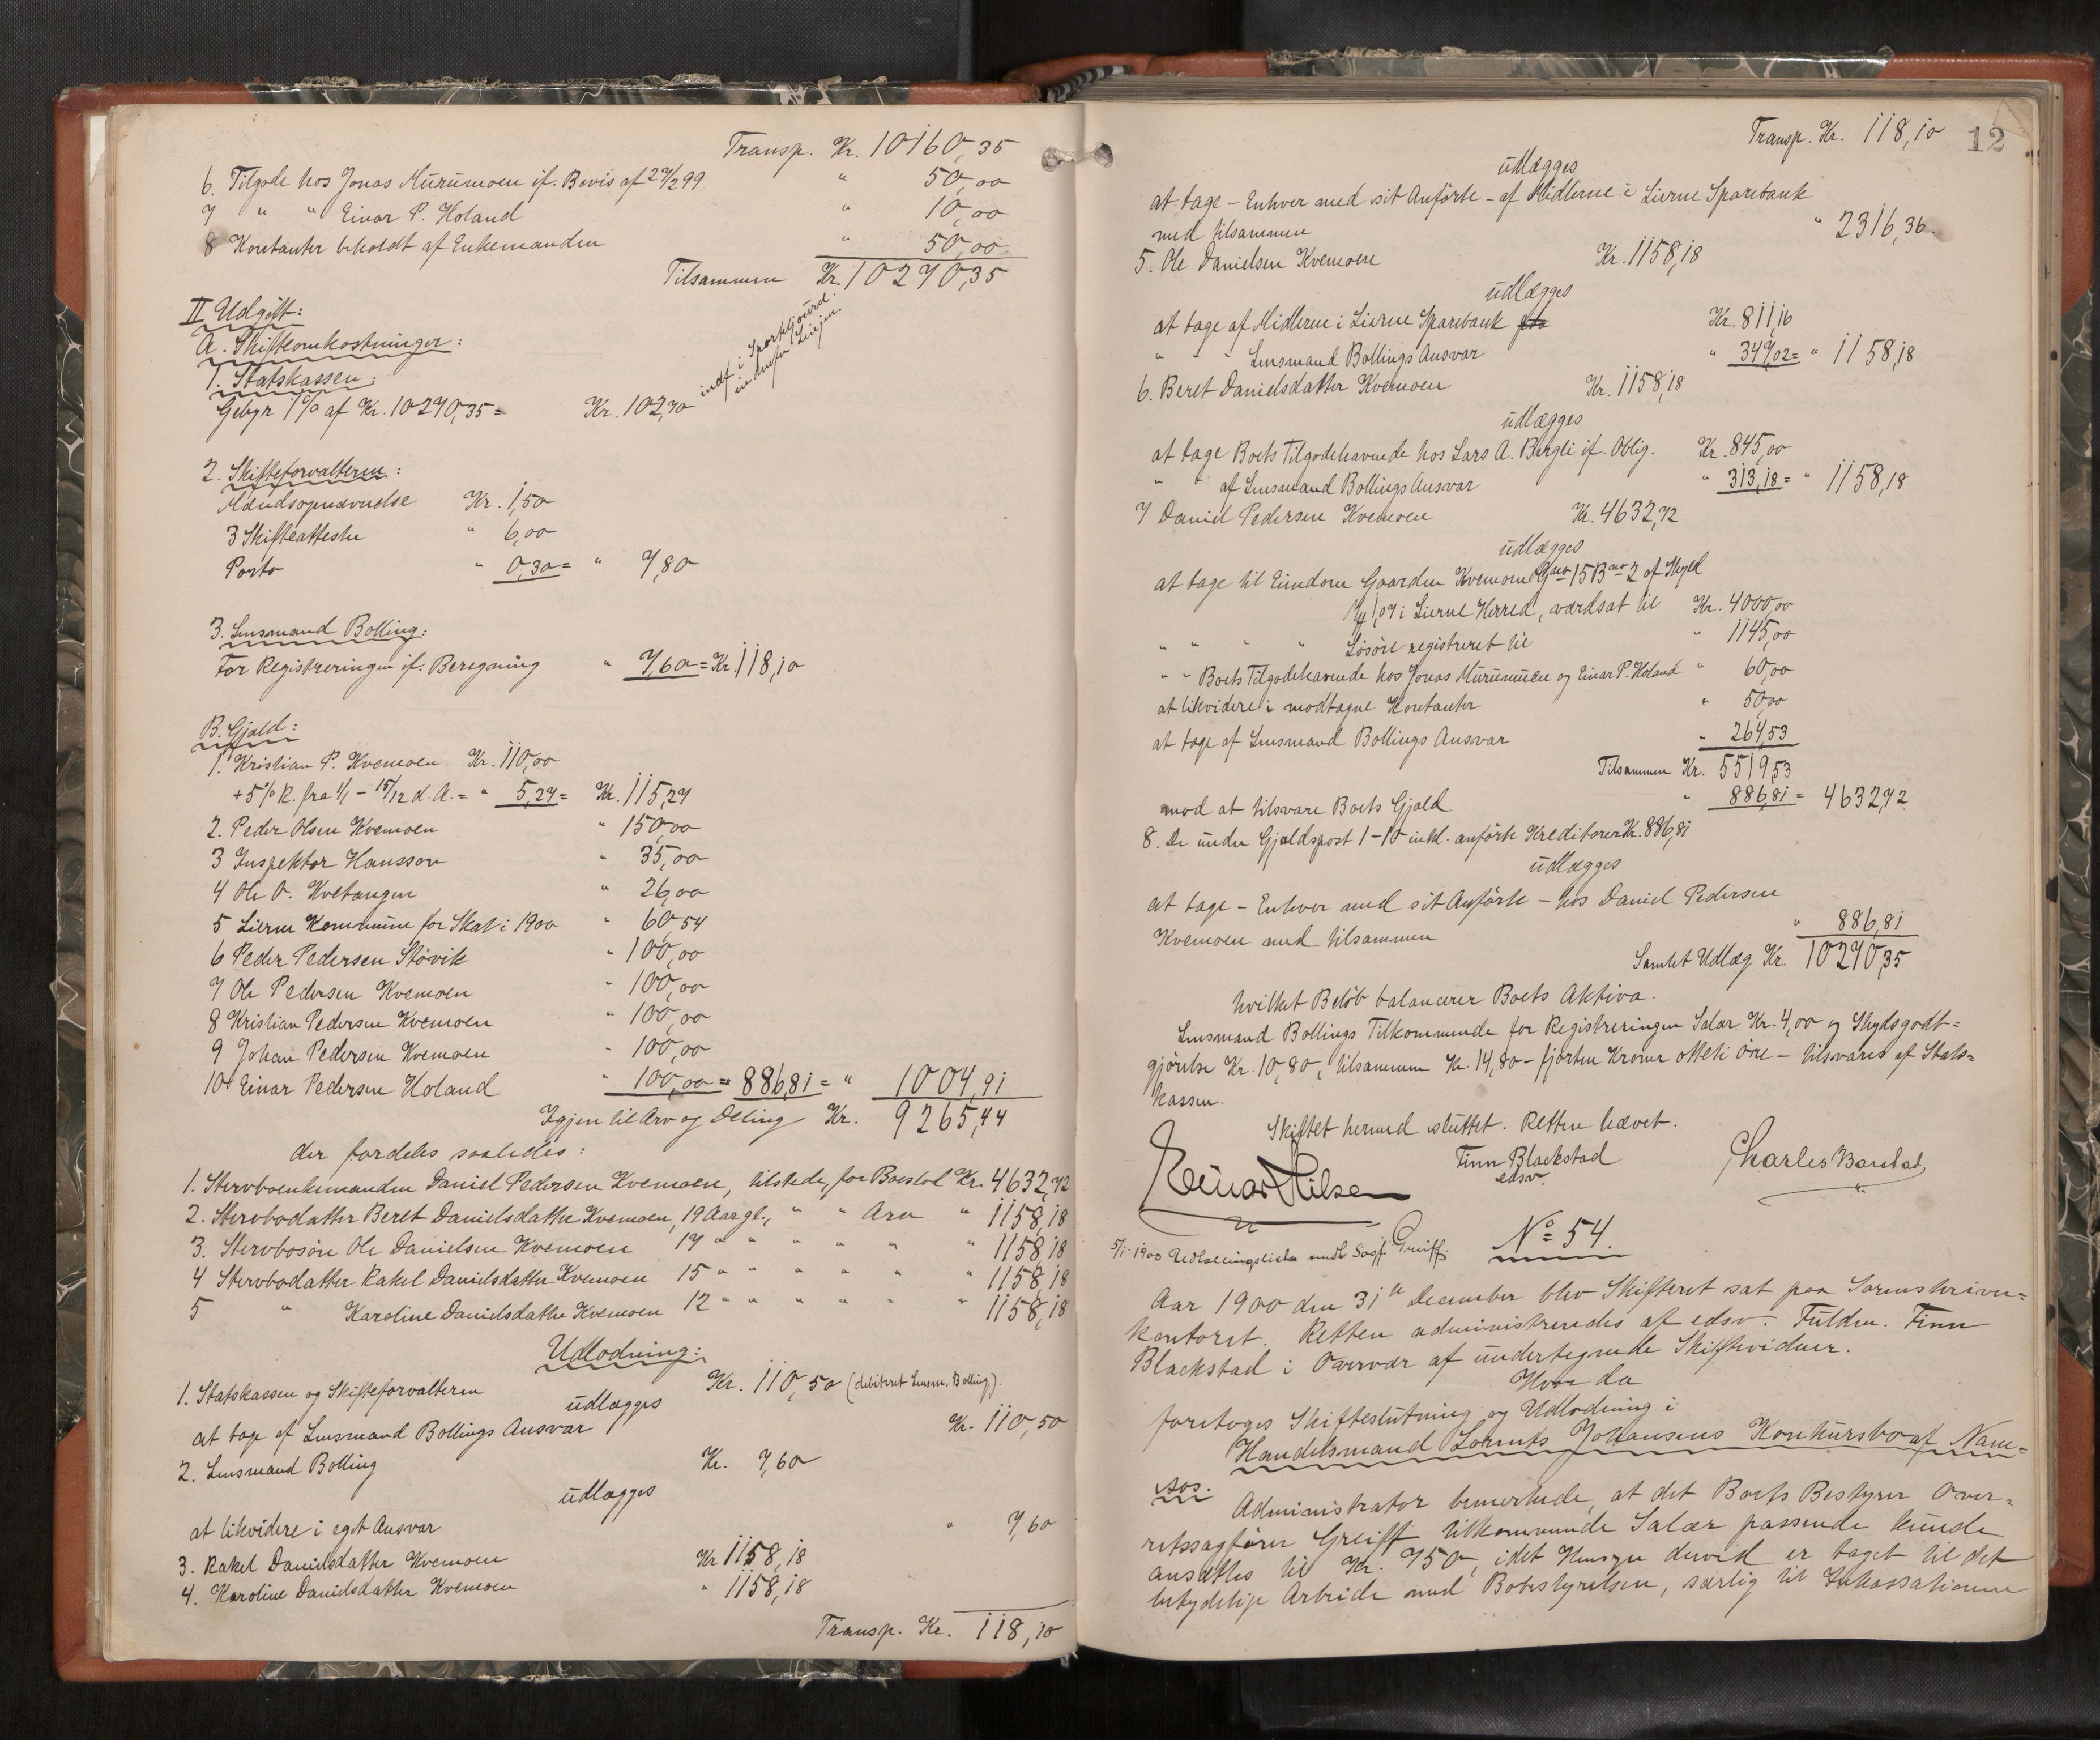 Transp. Kr. 10160,35
6. Tilgode hos Jonas Murumoen if. Bevis af 27/2 99 " 50,00
7 " " Einar P. Holand " 10,00
8 Kontanter beholdt af Enkemanden " 50,00
Tilsammen Kr. 10270,35
II Udgift:
A. Skifteomkostninger:
1. Statskassen:
Gebyr 1% af Kr. 10270,35 = Kr. 102,70
2. Skifteforvalteren:
Mændsopnævnelse Kr. 1,50
3 Skifteattester " 6,00
Porto " 0,30 = " 7,80
3. Lensmand Bolling:
For Registreringen if. Beregning " 7,60 = Kr. 118,10
B. Gjæld:
1. Kristian P. Kvemoen Kr. 110,00
+ 5% R. fra 1/1 - 15/12 d. A. = " 5,27 = Kr. 115,27
2. Peder Olsen Kvemoen " 150,00
3 Inspektor Hansson " 35,00
4 Ole O. Kvetangen " 26,00
5 Lierne Kommune for Skat i 1900 " 60,54
6 Peder Pedersen Støvik " 100,00
7 Ole Pedersen Kvemoen " 100,00
8 Kristian Pedersen Kvemoen " 100,00
9 Johan Pedersen Kvemoen " 100,00
10 Einar Pedersen Holand " 100,00 = 886,81 = " 1004,91
Igjen til Arv og Deling Kr. 9265,44
der fordeles saaledes:
1. Stervboenkemanden Daniel Pedersen Kvemoen, tilstede, for Boeslod Kr. 4632,72
2. Stervbodatter Beret Danielsdatter Kvemoen, 19 Aar gl., " " Arv " 1158,18
3. Stervbosøn Ole Danielsen Kvemoen 17 " " " " " " 1158,18
4 Stervbodatter Rakel Danielsdatter Kvemoen 15 " " " " " " 1158,18
5 " Karoline Danielsdatter Kvemoen 12 " " " " " " 1158,18
Udlodning:
1. Statskassen og Skifteforvalteren Kr. 110,50 (debiteret Lensm. Bolling).
udlægges
at tage af Lensmand Bollings Ansvar Kr. 110,50
2. Lensmand Bolling Kr. 7,60
udlægges
at likvidere i eget Ansvar " 7,60
3. Rakel Danielsdatter Kvemoen Kr 1158,18
4. Karoline Danielsdatter Kvemoen " 1158,18
Transp. Kr. 118,10
12
Transp. Kr. 118,10
udlægges
at tage - Enhver med sit Anførte - af Midlerne i Lierne Sparebank
med tilsammen " 2316,36.
5. Ole Danielsen Kvemoen Kr. 1158,18
udlægges
at tage af Midlerne i Lierne Sparebank Kr. 811,16
" " " Lensmand Bollings Ansvar " 347,02 = " 1158,18
6. Beret Danielsdatter Kvemoen Kr. 1158,18
udlægges
at tage Boets Tilgodehavende hos Lars A. Bergli if. Oblig. Kr. 845,00
" " af Lensmand Bollings Ansvar " 313,18 = " 1158,18
7 Daniel Pedersen Kvemoen Kr. 4632,72
udlægges
at tage til Eiendom Gaarden Kvemoen Gno 15 Bno 2 af Skyld
My 1,07 i Lierne Herred, værdsat til Kr. 4000,00
" " " " Løsøre registreret til " 1145,00
" " Boets Tilgodehavende hos Jonas Murumoen og Einar P. Holand " 60,00
at likvidere i modtagne Kontanter " 50,00
at tage af Lensmand Bollings Ansvar " 264,53
Tilsammen Kr. 5519,53
mod at tilsvare Boets Gjæld " 886,81 = 4632,72
8. De under Gjældspost 1-10 inkl. anførte Kreditorer Kr. 886,81
udlægges
at tage - Enhver med sit Anførte - hos Daniel Pedersen
Kvemoen med tilsammen " 886,81
Samlet Udlæg Kr. 10270,35
hvilket Beløb balancerer Boets Aktiva.
Lensmand Bollings Tilkommende for Registreringen Salær Kr. 4,00 og Skydsgodt=
gjørelse Kr. 10,80, tilsammen Kr. 14,80 - fjorten Kroner otteti øre - tilsvares af Stats=
kassen.
Skiftet hermed sluttet. Retten hævet.
Finn Blackstad
edsv.
Einar Nilsen
Charles Barstad
No 54.
5/1-1900 Udlodningsliste medt Sagf. Greiff.
Aar 1900 den 31te December blev Skifteret sat paa Sorenskriver=
kontoret. Retten administreredes af edsv. Fuldm. Finn
Blackstad i Overvær af undertegnede Skiftevidner.
Hvor da
foretoges Skifteslutning og Udlodning i
Handelsmand Lorents Johansens Konkursbo af Nam=
sos.
Administrator bemerkede, at det Boets Bestyrer Over=
retssagfører Greiff tilkommende Salær passende kunde
ansættes til Kr. 750, idet Hensyn derved er taget til det
betydelige Arbeide med Bobestyrelsen, særlig til Inkassationen